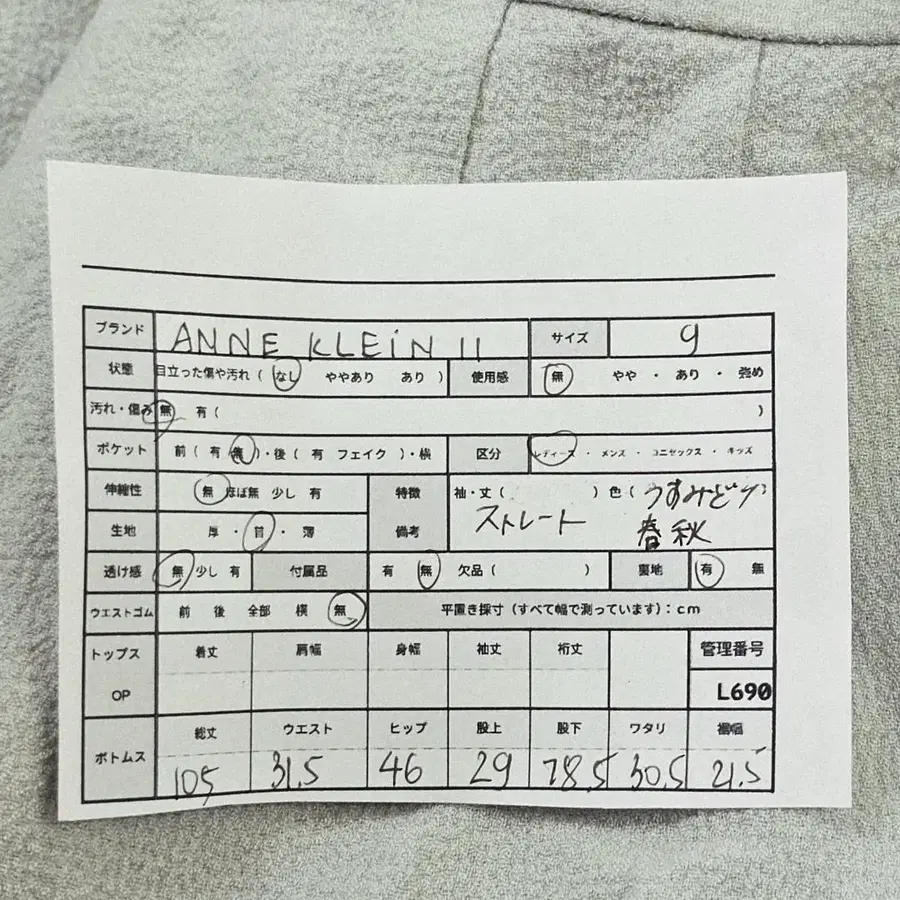 ブランド ANNE KLEIN II サイズ 9
状態 目立った傷や汚れ ( なし ややあり あり ) 使用感 無 やや ・ あり ・ 強め
汚れ・傷み 無 有 ( )
ポケット 前 ( 有 無 )・後 ( 有 フェイク )・横 区分 レディース ・ メンズ ・ ユニセックス ・ キッズ
伸縮性 無 ほぼ無 少し 有 特徴 袖・丈 ( ) 色 ( うすみどり )
生地 厚 ・ 普 ・ 薄 備考 ストレート 春秋
透け感 無 少し 有 付属品 有 無 欠品 ( ) 裏地 有 無
ウエストゴム 前 後 全部 横 無 平置き採寸 (すべて幅で測っています) : cm
トップス 着丈 肩幅 身幅 袖丈 裄丈 管理番号
OP L690
ボトムス 総丈 ウエスト ヒップ 股上 股下 ワタリ 裾幅
105 31.5 46 29 78.5 30.5 21.5